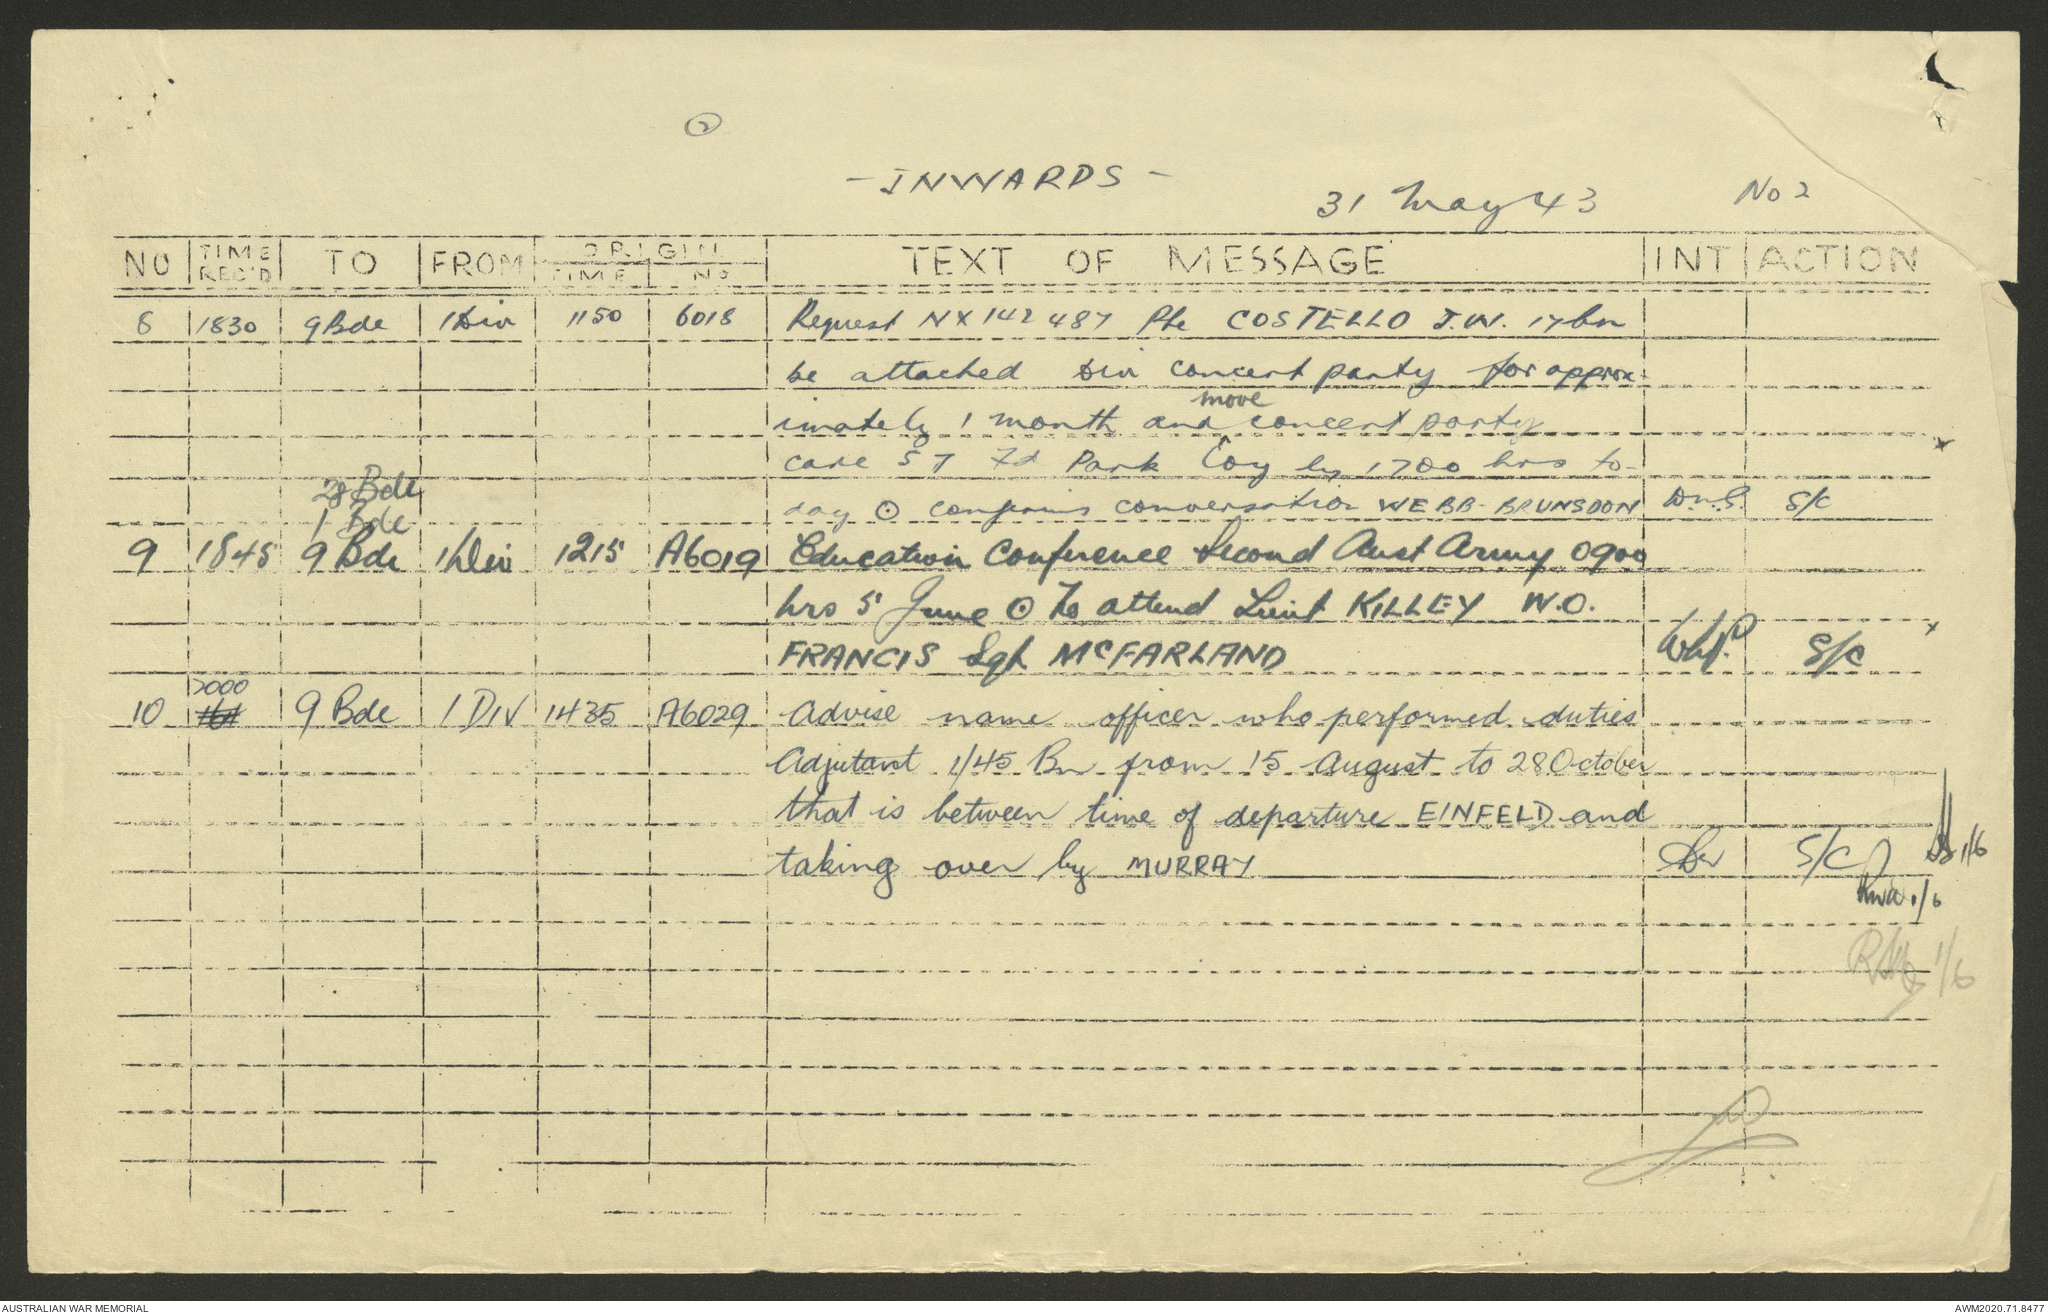 2
- INWARDS -
31 May 43 No 2
NO TIME REC'D TO FROM ORIGIN TIME NO TEXT OF MESSAGE INT ACTION
8 1830 9 Bde 1 Div 1150 6018 Request NX142487 Pte COSTELLO J.W. 17 bn
be attached Div concert party for approx-
imately 1 month and move concert party
care 57 Fd Park Coy by 1700 hrs to-
day ⊙ confirms conversation WEBB-BRUNSDON S/C
28 Bde
1 Bde
9 1845 9 Bde 1 Div 1215 A6019 Education Conference Second Aust Army 0900
hrs 5 June ⊙ To attend Lieut KILLEY W.O.
FRANCIS Sgt McFARLAND S/C
2000
10 9 Bde 1 DIV 1435 A6029 Advise name officer who performed duties
Adjutant 1/45 Bn from 15 August to 28 October
that is between time of departure EINFELD and
taking over by MURRAY S/C 1/6
1/6
1/6
AUSTRALIAN WAR MEMORIAL AWM2020.71.8477